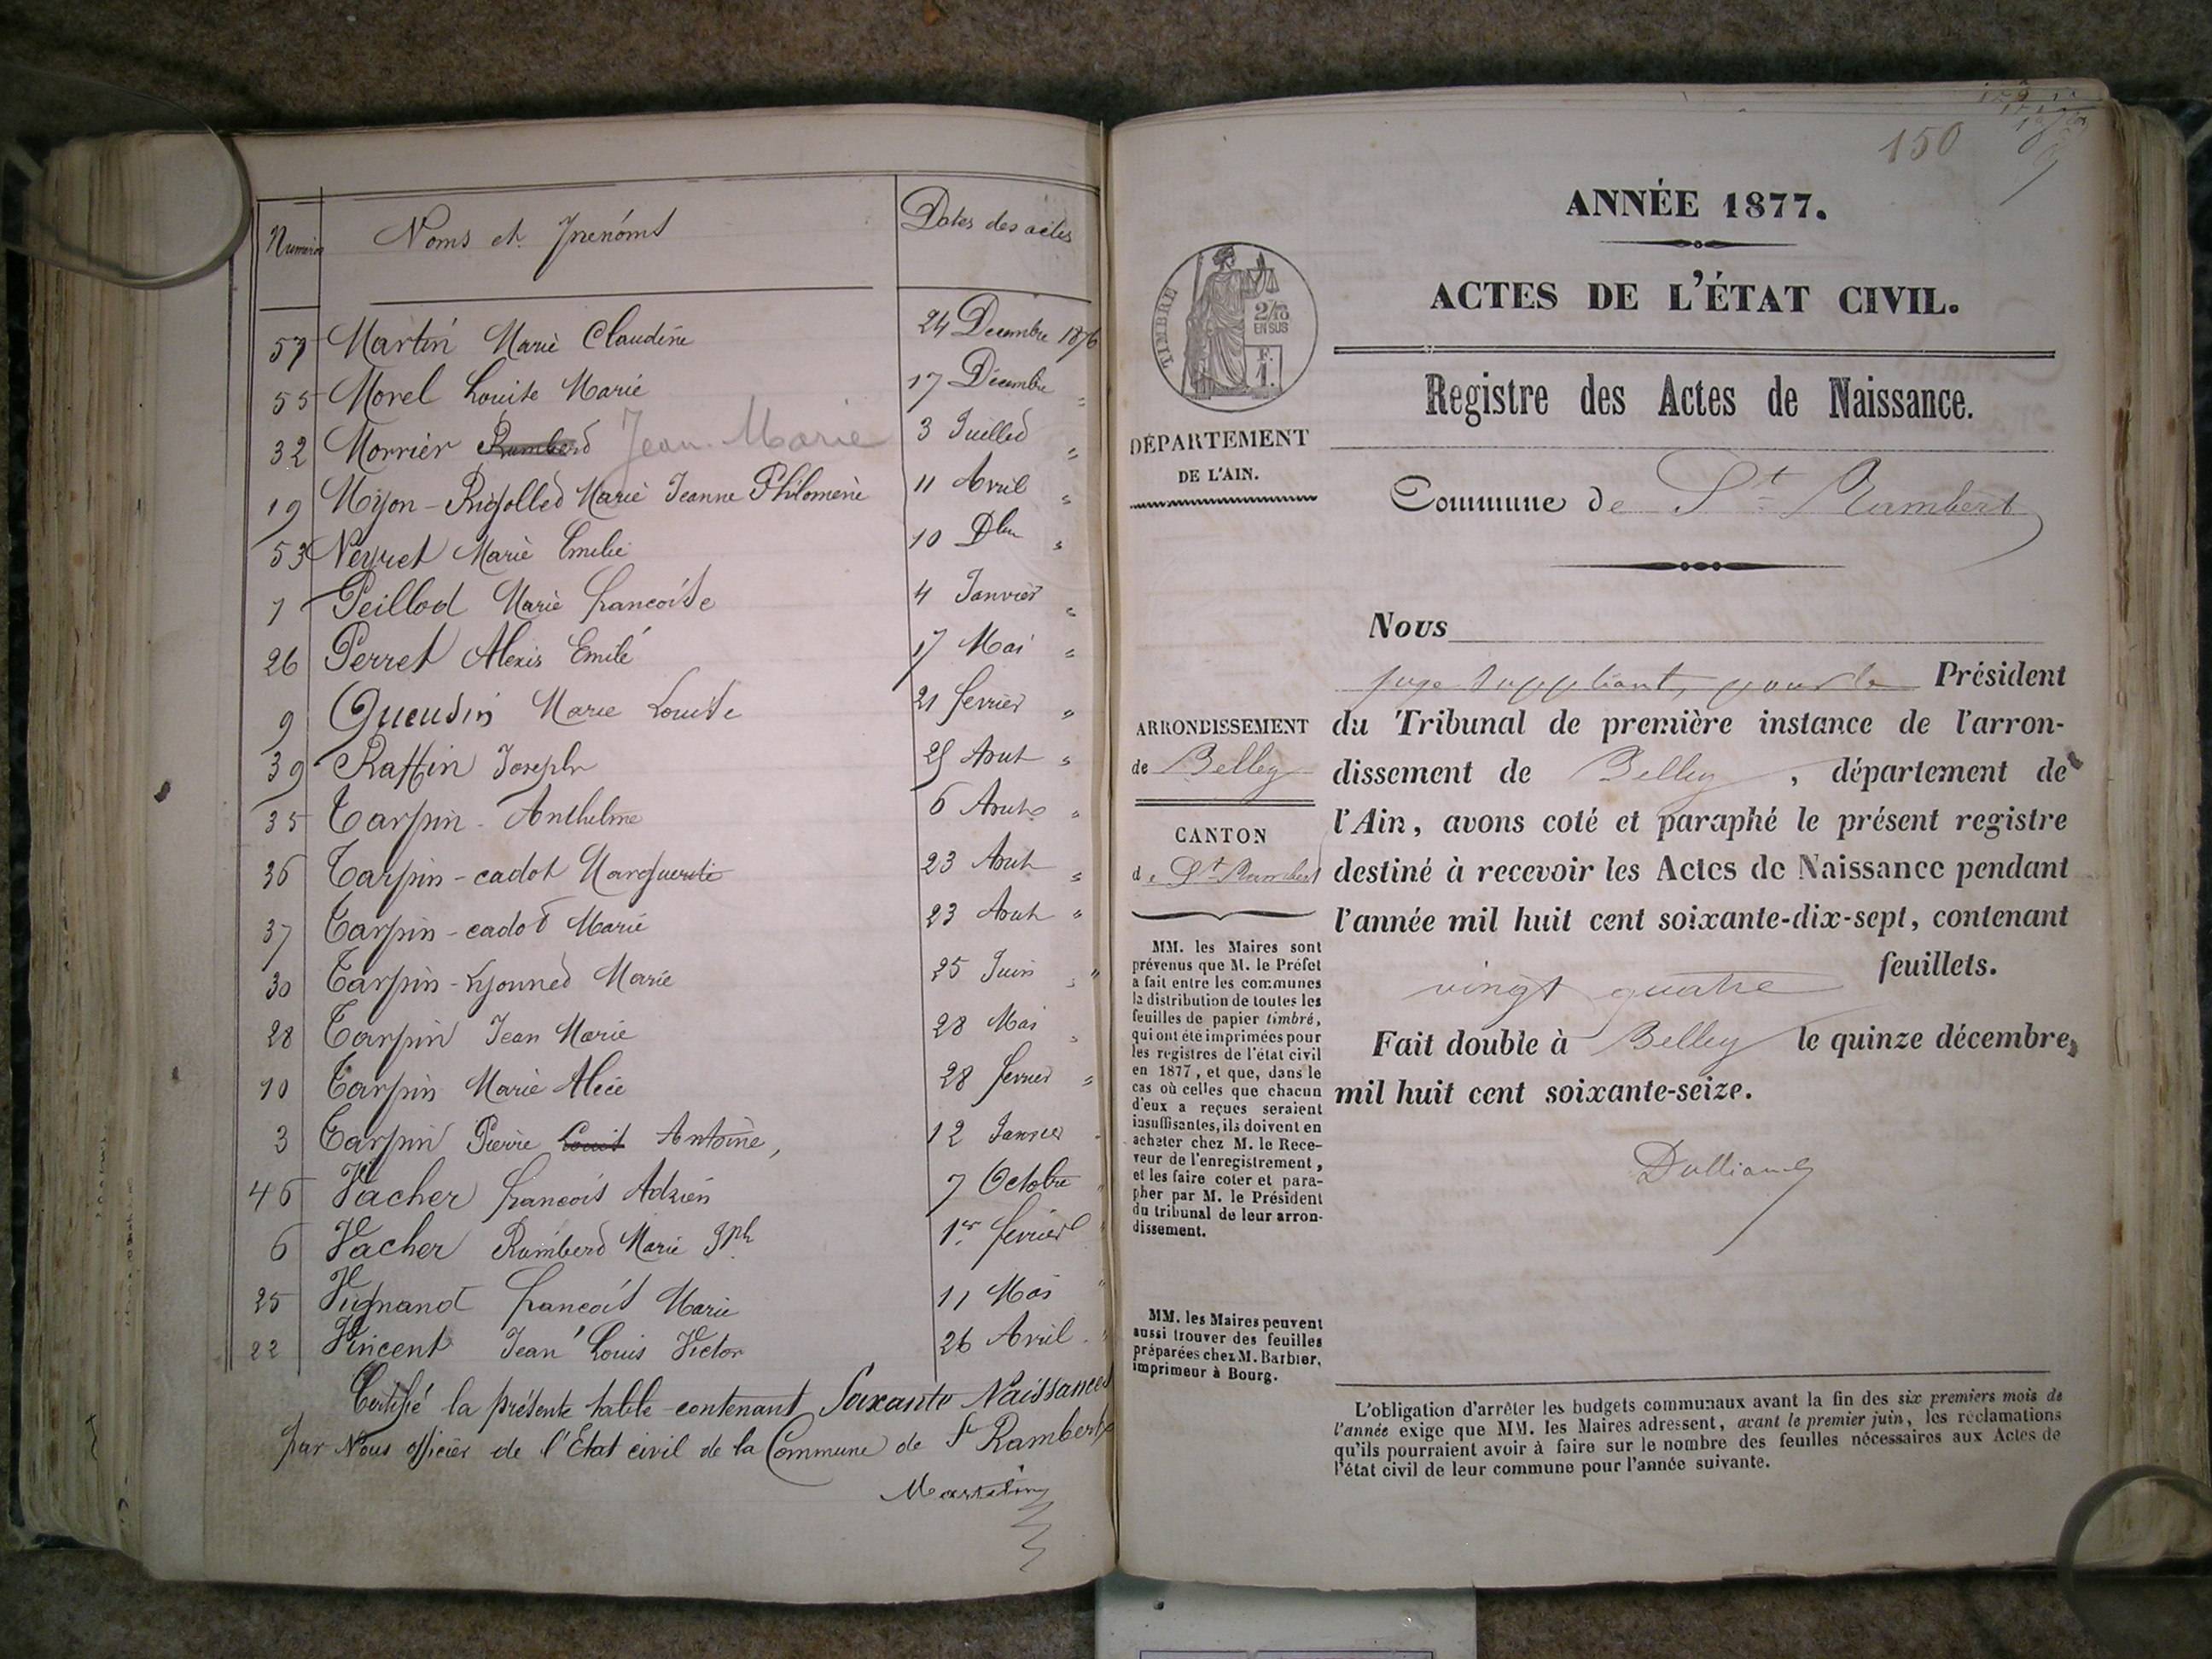 Numéros Noms et Prénoms Dates des actes
57 Martin Marie Claudine 24 Décembre 1876
55 Morel Louise Marie 17 Décembre "
32 Morrier Rambert Jean-Marie 3 Juillet "
19 Miyon-Rigollet Marie Jeanne Philomène 11 Avril "
53 Neyret Marie Emilie 10 Dbre "
1 Peillod Marie françoise 4 Janvier "
26 Perret Alexis Emile 17 Mai "
9 Queudin Marie Louise 21 fevrier "
39 Raffin Joseph 25 Aout "
35 Tarpin-Anthelme 6 Aout "
36 Tarpin-cadot Marguerite 23 Aout "
37 Tarpin-cadot Marie 23 Aout "
30 Tarpin-Lyonnet Marie 25 Juin "
28 Tarpin Jean Marie 28 Mai "
10 Tarpin Marie Alice 28 fevrier "
3 Tarpin Pierre Louis Antoine, 12 Janvier
46 Vacher françois Adrien 7 Octobre "
6 Vacher Rambert Marie Jph 1er fevrier "
25 Vignand françois Marie 11 Mai "
22 Vincent Jean Louis Victor 26 Avril "
Certifié la présente table contenant Soixante Naissances
par Nous officier de l'Etat civil de la Commune de St Rambert
150
ANNÉE 1877.
ACTES DE L'ÉTAT CIVIL.
Registre des Actes de Naissance.
Commune de St Rambert
TIMBRE
2/10
EN SUS
F.
1.
DÉPARTEMENT
DE L'AIN.
ARRONDISSEMENT
de Belley
CANTON
de St Rambert
MM. les Maires sont
prévenus que M. le Préfet
a fait entre les communes
la distribution de toutes les
feuilles de papier timbré,
qui ont été imprimées pour
les registres de l'état civil
en 1877, et que, dans le
cas où celles que chacun
d'eux a reçues seraient
insuffisantes, ils doivent en
acheter chez M. le Rece-
veur de l'enregistrement,
et les faire coter et para-
pher par M. le Président
du tribunal de leur arron-
dissement.
MM. les Maires peuvent
aussi trouver des feuilles
préparées chez M. Barbier,
imprimeur à Bourg.
Nous
juge suppléant, pour le Président
du Tribunal de première instance de l'arron-
dissement de Belley, département de
l'Ain, avons coté et paraphé le présent registre
destiné à recevoir les Actes de Naissance pendant
l'année mil huit cent soixante-dix-sept, contenant
vingt quatre feuillets.
Fait double à Belley le quinze décembre,
mil huit cent soixante-seize.
L'obligation d'arrêter les budgets communaux avant la fin des six premiers mois de
l'année exige que MM. les Maires adressent, avant le premier juin, les réclamations
qu'ils pourraient avoir à faire sur le nombre des feuilles nécessaires aux Actes de
l'état civil de leur commune pour l'année suivante.